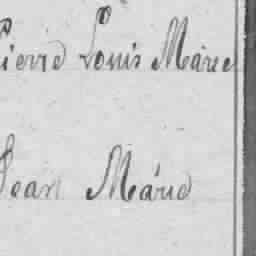 Pierre Louis Marie
Jean Marie